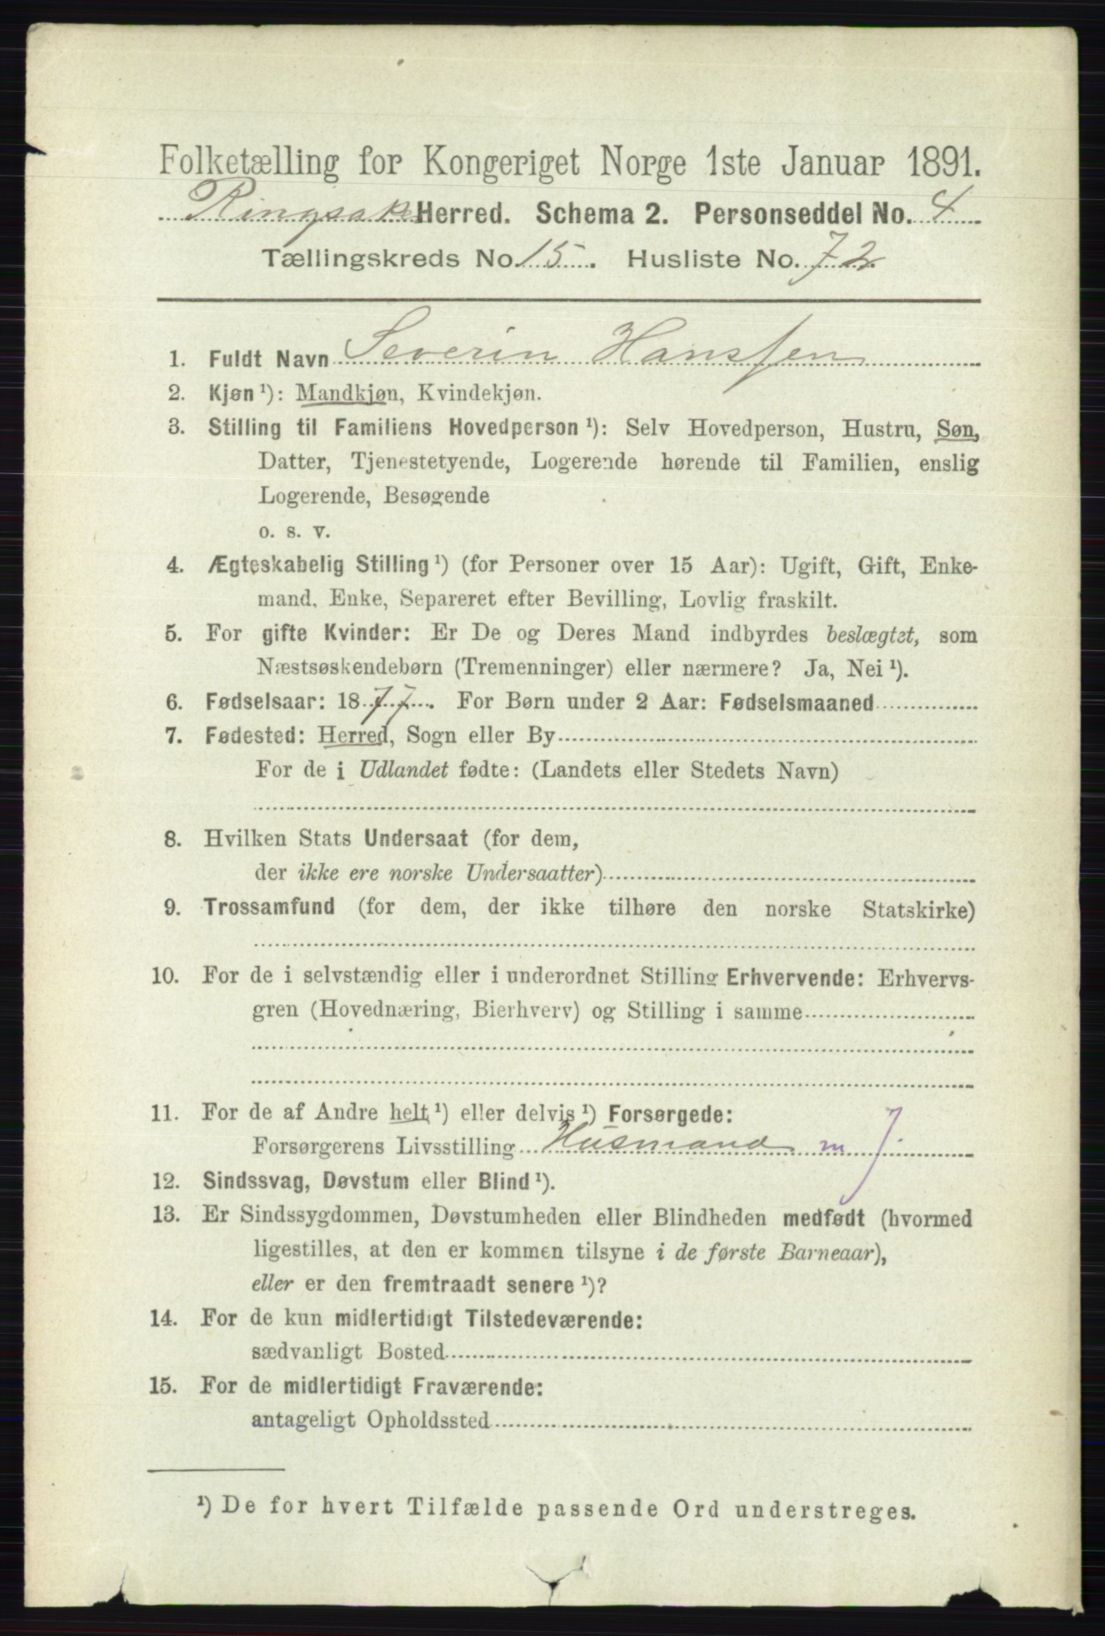 Folketælling for Kongeriget Norge 1ste Januar 1891.
Ringsaker Herred. Schema 2. Personseddel No. 4
Tællingskreds No. 15. Husliste No. 72.
1. Fuldt Navn Severin Hanssen
2. Kjøn ¹): Mandkjøn, Kvindekjøn.
3. Stilling til Familiens Hovedperson ¹): Selv Hovedperson, Hustru, Søn,
Datter, Tjenestetyende, Logerende hørende til Familien, enslig
Logerende, Besøgende
o. s. v.
4. Ægteskabelig Stilling ¹) (for Personer over 15 Aar): Ugift, Gift, Enke-
mand, Enke, Separeret efter Bevilling, Lovlig fraskilt.
5. For gifte Kvinder: Er De og Deres Mand indbyrdes beslægtet, som
Næstsøskendebørn (Tremenninger) eller nærmere? Ja, Nei ¹).
6. Fødselsaar: 1877. For Børn under 2 Aar: Fødselsmaaned
7. Fødested: Herred, Sogn eller By
For de i Udlandet fødte: (Landets eller Stedets Navn)
8. Hvilken Stats Undersaat (for dem,
der ikke ere norske Undersaatter)
9. Trossamfund (for dem, der ikke tilhøre den norske Statskirke)
10. For de i selvstændig eller i underordnet Stilling Erhvervende: Erhvervs-
gren (Hovednæring, Bierhverv) og Stilling i samme
11. For de af Andre helt ¹) eller delvis ¹) Forsørgede:
Forsørgerens Livsstilling Husmand m J.
12. Sindssvag, Døvstum eller Blind ¹).
13. Er Sindssygdommen, Døvstumheden eller Blindheden medfødt (hvormed
ligestilles, at den er kommen tilsyne i de første Barneaar),
eller er den fremtraadt senere ¹)?
14. For de kun midlertidigt Tilstedeværende:
sædvanligt Bosted
15. For de midlertidigt Fraværende:
antageligt Opholdssted
¹) De for hvert Tilfælde passende Ord understreges.